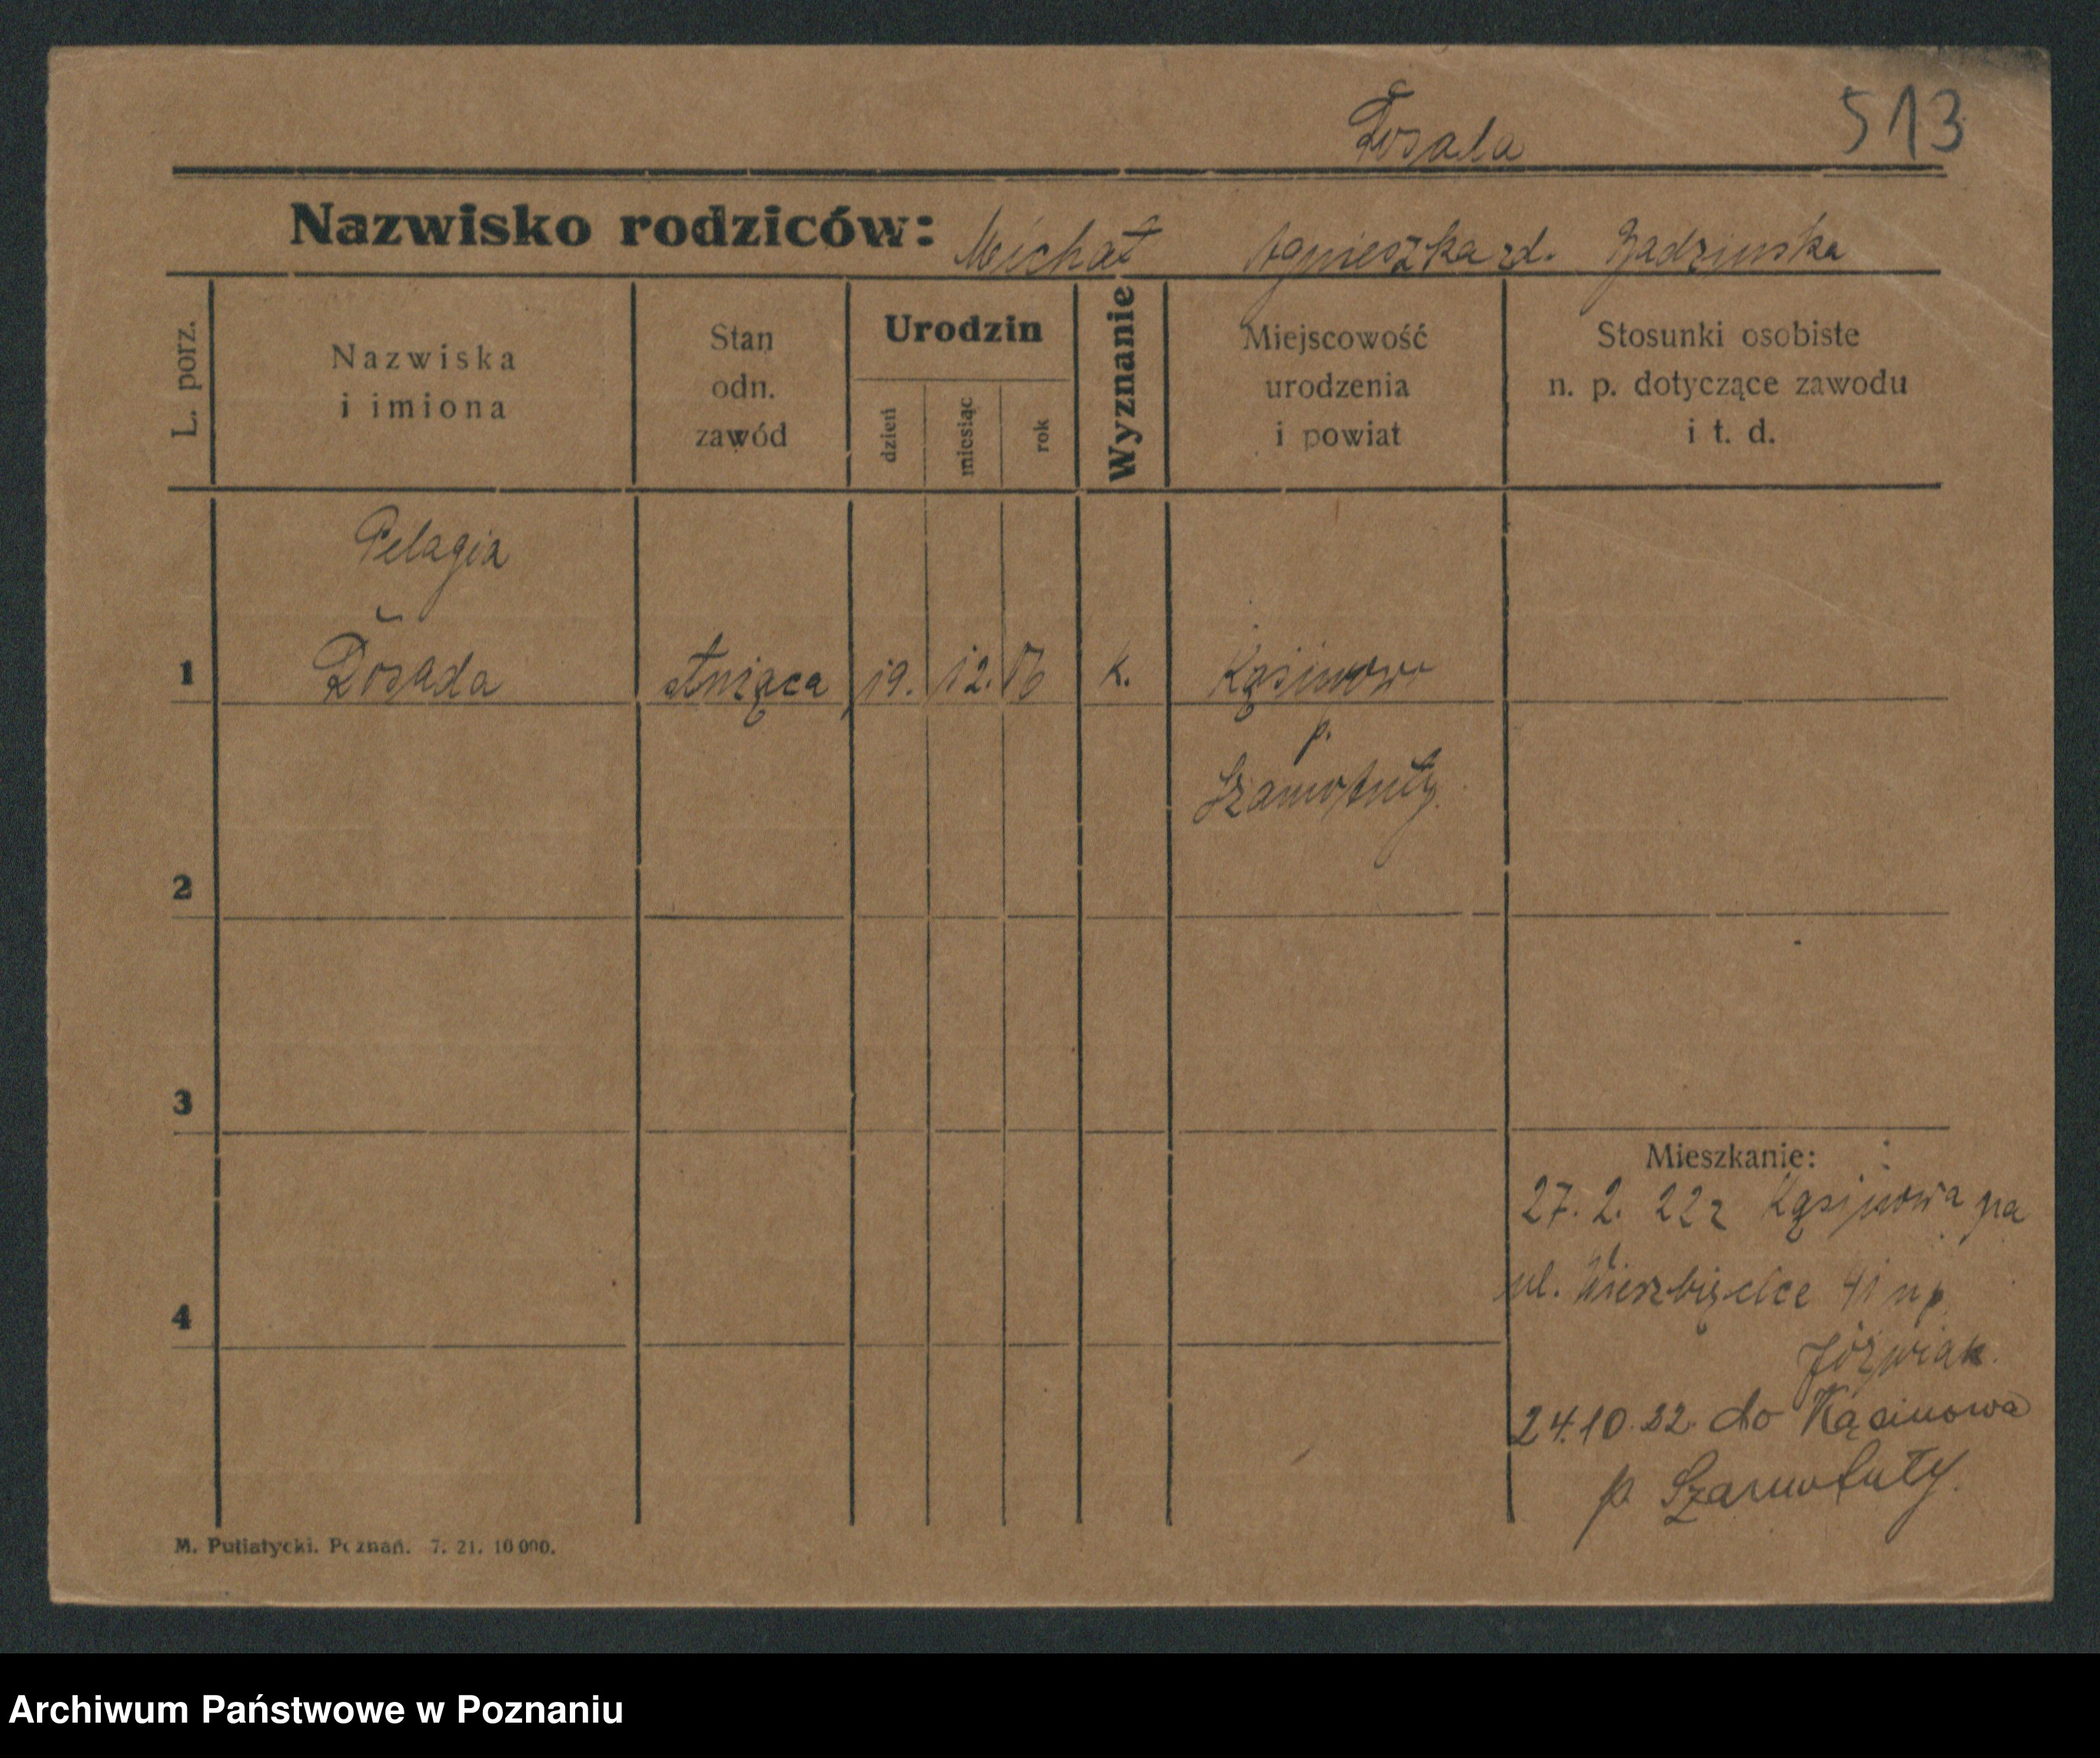 513
Nazwisko rodziców: Michał Agnieszka rd.
L. porz.
Nazwiska
i imiona
Stan
odn.
zawód
Urodzin
dzień
miesiąc
rok
Wyznanie
Miejscowość
urodzenia
i powiat
Stosunki osobiste
n. p. dotyczące zawodu
i t. d.
Pelagia
1 służąca 19. 12. 06 k. Kąsinowo
p.
Szamotuły.
2
3
4
Mieszkanie:
27. 2. 22 z Kąsinowa na
ul. Wierzbięcice 41 n p
Jóźwiak.
24.10.22. do Kąsinowa
p. Szamotuły.
M. Putiatycki. Poznań. 7. 21. 10 000.
Archiwum Państwowe w Poznaniu